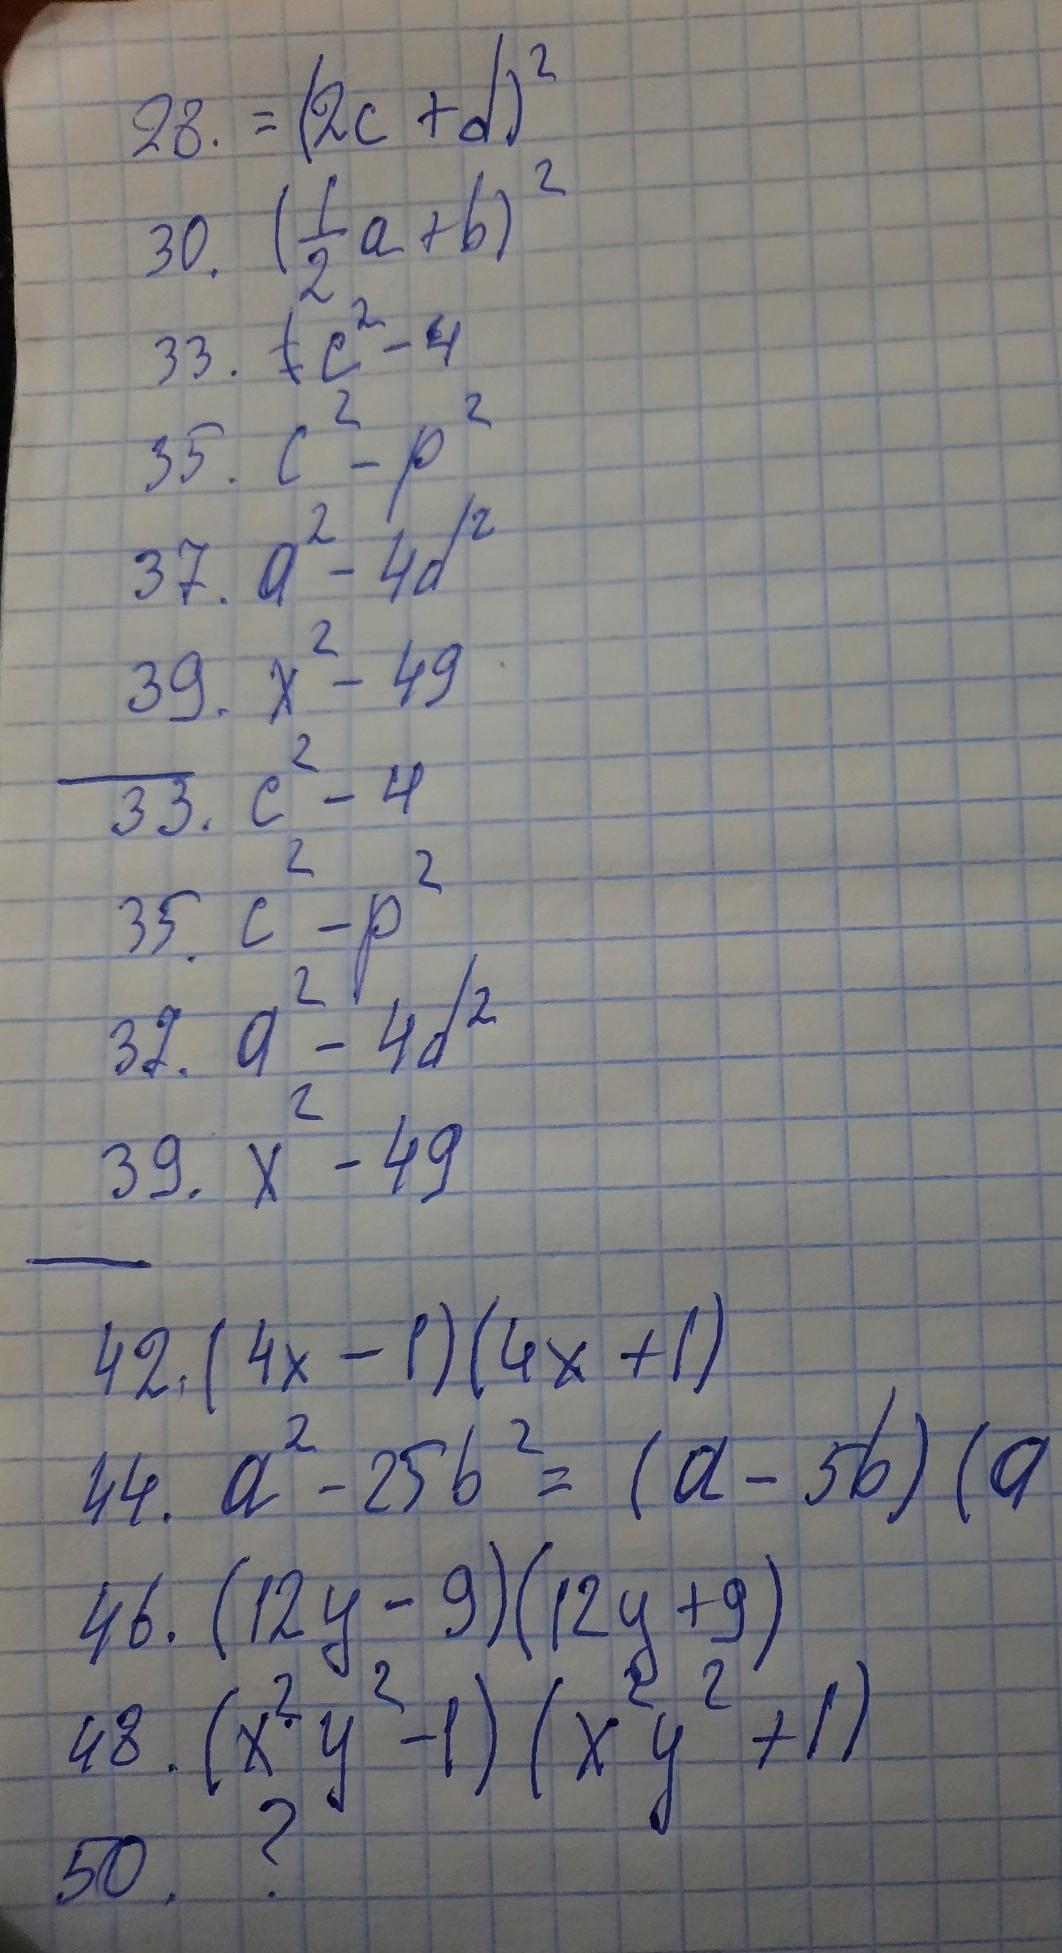 28. = (2c + d)²
30. (1/2 a + b)²
33. c² - 4
35. c² - p²
37. a² - 4d²
39. x² - 49
33. c² - 4
35. c² - p²
37. a² - 4d²
39. x² - 49
42. (4x - 1)(4x + 1)
44. a² - 25b² = (a - 5b)(a
46. (12y - 9)(12y + 9)
48. (x²y² - 1)(x²y² + 1)
50. ?